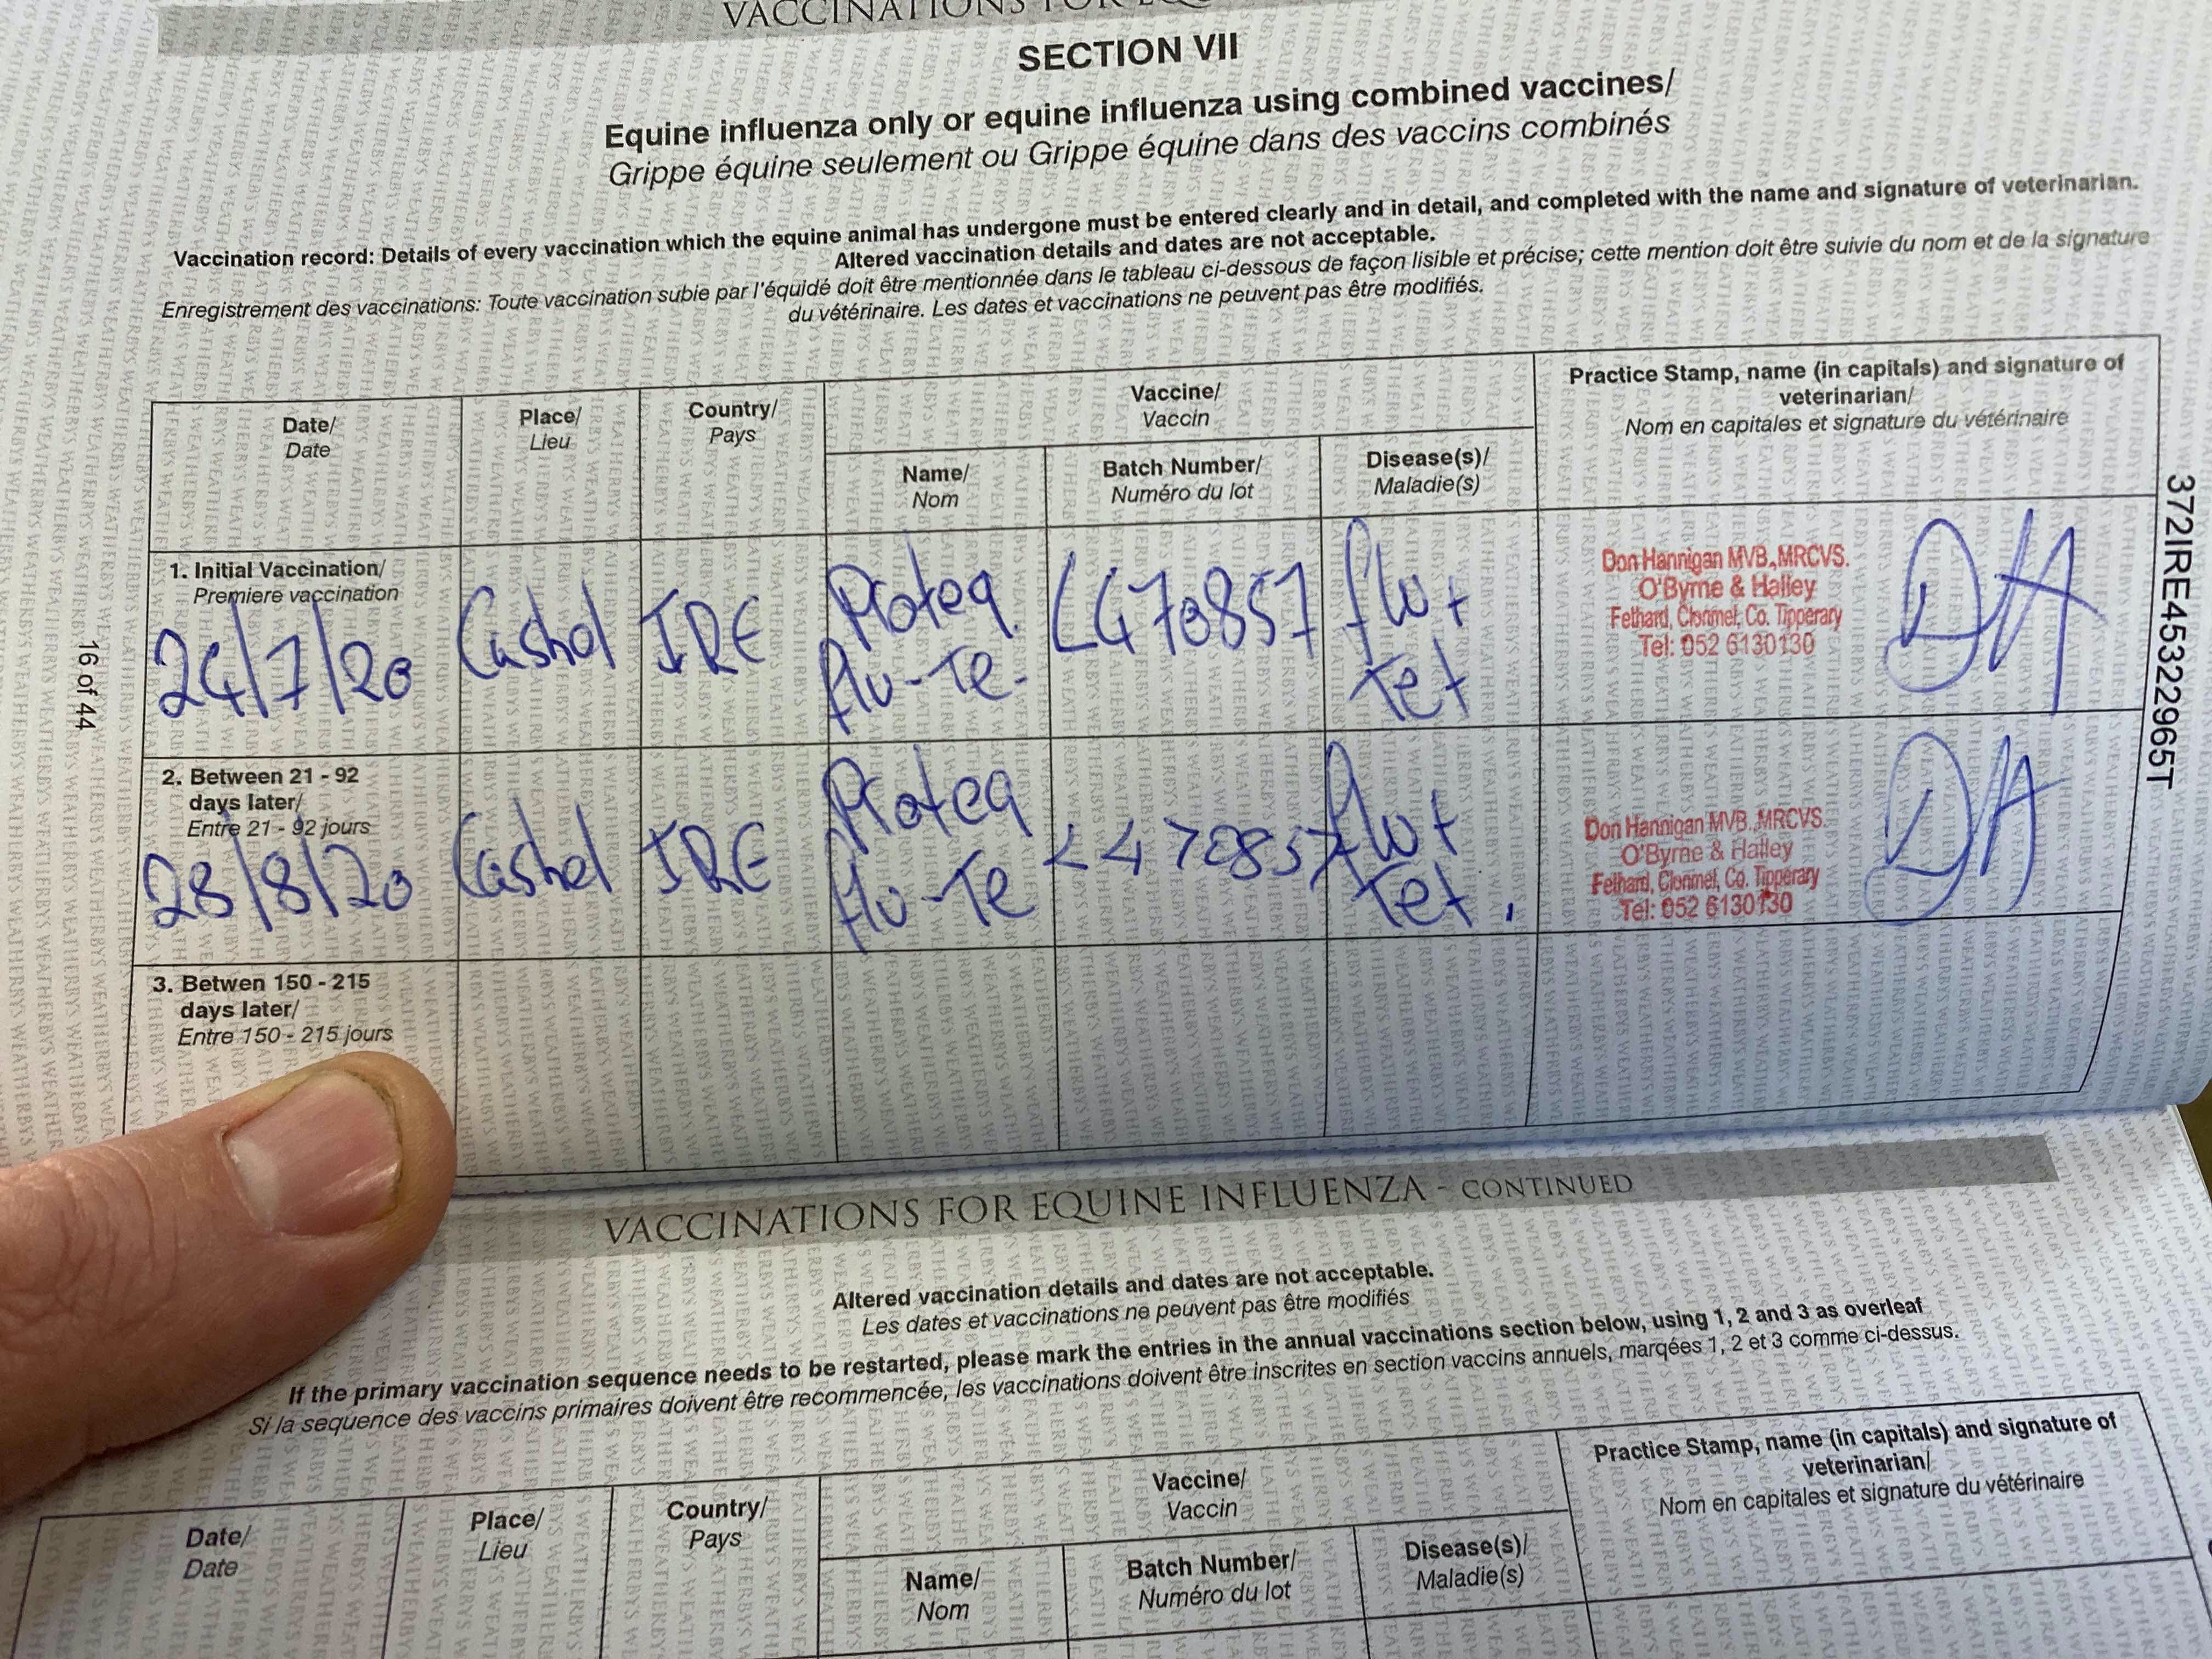 VACCINATIONS FOR EQU
SECTION VII
Equine influenza only or equine influenza using combined vaccines/
Grippe équine seulement ou Grippe équine dans des vaccins combinés
Vaccination record: Details of every vaccination which the equine animal has undergone must be entered clearly and in detail, and completed with the name and signature of veterinarian.
Altered vaccination details and dates are not acceptable.
Enregistrement des vaccinations: Toute vaccination subie par l'équidé doit être mentionnée dans le tableau ci-dessous de façon lisible et précise; cette mention doit être suivie du nom et de la signature
du vétérinaire. Les dates et vaccinations ne peuvent pas être modifiés.
Date/
Date
Place/
Lieu
Country/
Pays
Vaccine/
Vaccin
Name/
Nom
Batch Number/
Numéro du lot
Disease(s)/
Maladie(s)
Practice Stamp, name (in capitals) and signature of
veterinarian/
Nom en capitales et signature du vétérinaire
1. Initial Vaccination/
Premiere vaccination
24/7/20
Cashel
IRE
Proteq
flu-Te.
L470857
flu+
Tet
Don Hannigan MVB., MRCVS.
O'Byrne & Halley
Fethard, Clonmel, Co. Tipperary
Tel: 052 6130130
DH
2. Between 21 - 92
days later/
Entre 21 - 92 jours
28/8/20
Cashel
IRE
Proteq
flu-Te
L470857
flu+
Tet.
Don Hannigan MVB., MRCVS.
O'Byrne & Halley
Fethard, Clonmel, Co. Tipperary
Tel: 052 6130130
DH
3. Betwen 150 - 215
days later/
Entre 150 - 215 jours
16 of 44
372IRE45322965T
VACCINATIONS FOR EQUINE INFLUENZA - CONTINUED
Altered vaccination details and dates are not acceptable.
Les dates et vaccinations ne peuvent pas être modifiés
If the primary vaccination sequence needs to be restarted, please mark the entries in the annual vaccinations section below, using 1, 2 and 3 as overleaf
Si la sequence des vaccins primaires doivent être recommencée, les vaccinations doivent être inscrites en section vaccins annuels, marqées 1, 2 et 3 comme ci-dessus.
Date/
Date
Place/
Lieu
Country/
Pays
Vaccine/
Vaccin
Name/
Nom
Batch Number/
Numéro du lot
Disease(s)/
Maladie(s)
Practice Stamp, name (in capitals) and signature of
veterinarian/
Nom en capitales et signature du vétérinaire